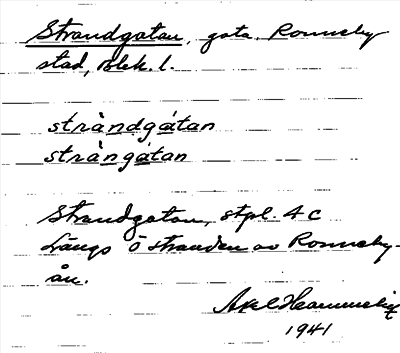 Strandgatan, gata, Ronneby
stad, Blek. l.
stràndgátan
stràngátan
Strandgatan, stpl. 4 c
Längs ö stranden av Ronneby-
ån.
Axel
1941